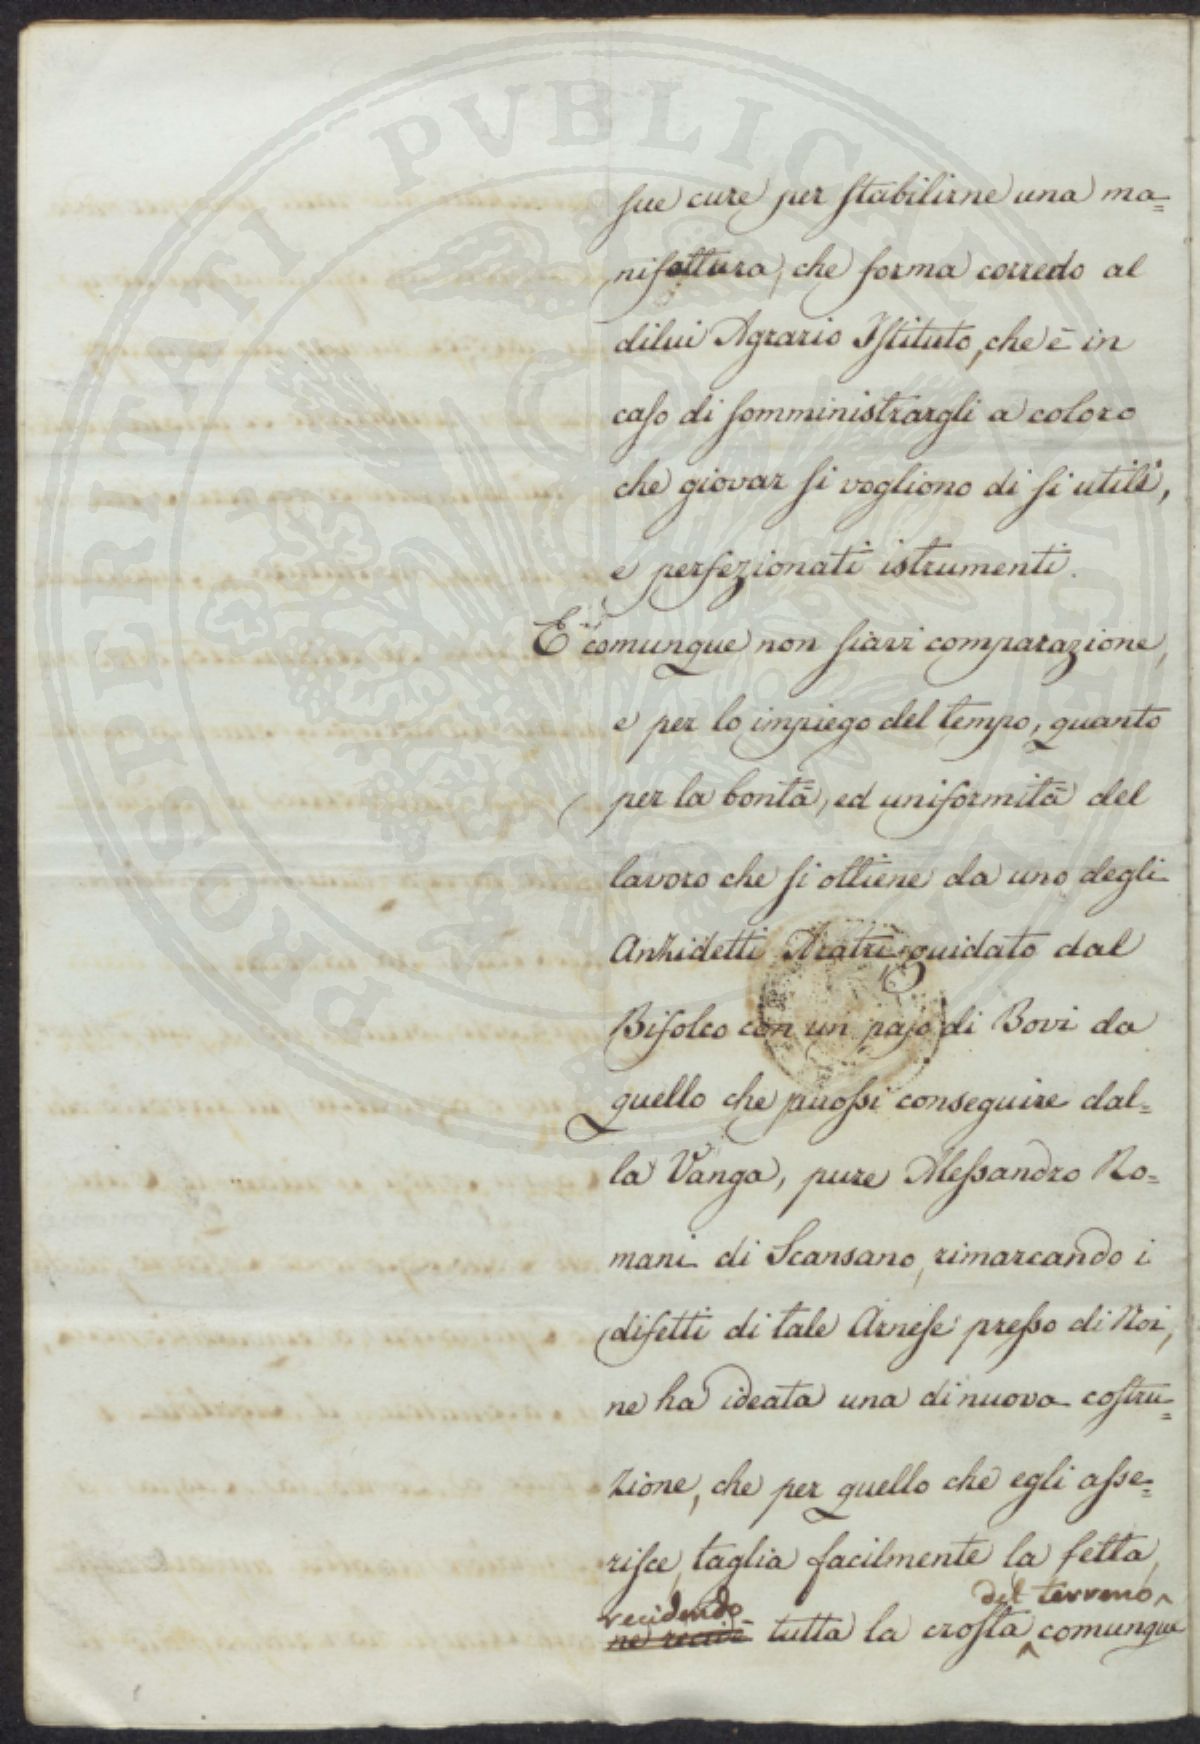 PROSPERITATI PVBLICAE AVGENDAE
sue cure per stabilirne una ma=
nifattura, che forma corredo al
dilui Agrario Istituto, che è in
caso di somministrargli a coloro
che giovar si vogliono di si utili,
e perfezionati istrumenti.
E comunque non siavi comparazione,
e per lo impiego del tempo, quanto
per la bontà, ed uniformità del
lavoro che si ottiene da uno degli
Anzidetti Aratri guidato dal
Bifolco con un pajo di Bovi da
quello che puossi conseguire dal=
la Vanga, pure Alessandro Ro=
mani di Scansano, rimarcando i
difetti di tale Arnese presso di Noi,
ne ha ideata una di nuova costru=
zione, che per quello che egli asse=
risce, taglia facilmente la fetta,
recidendo del terreno
ne recide tutta la crosta comunque